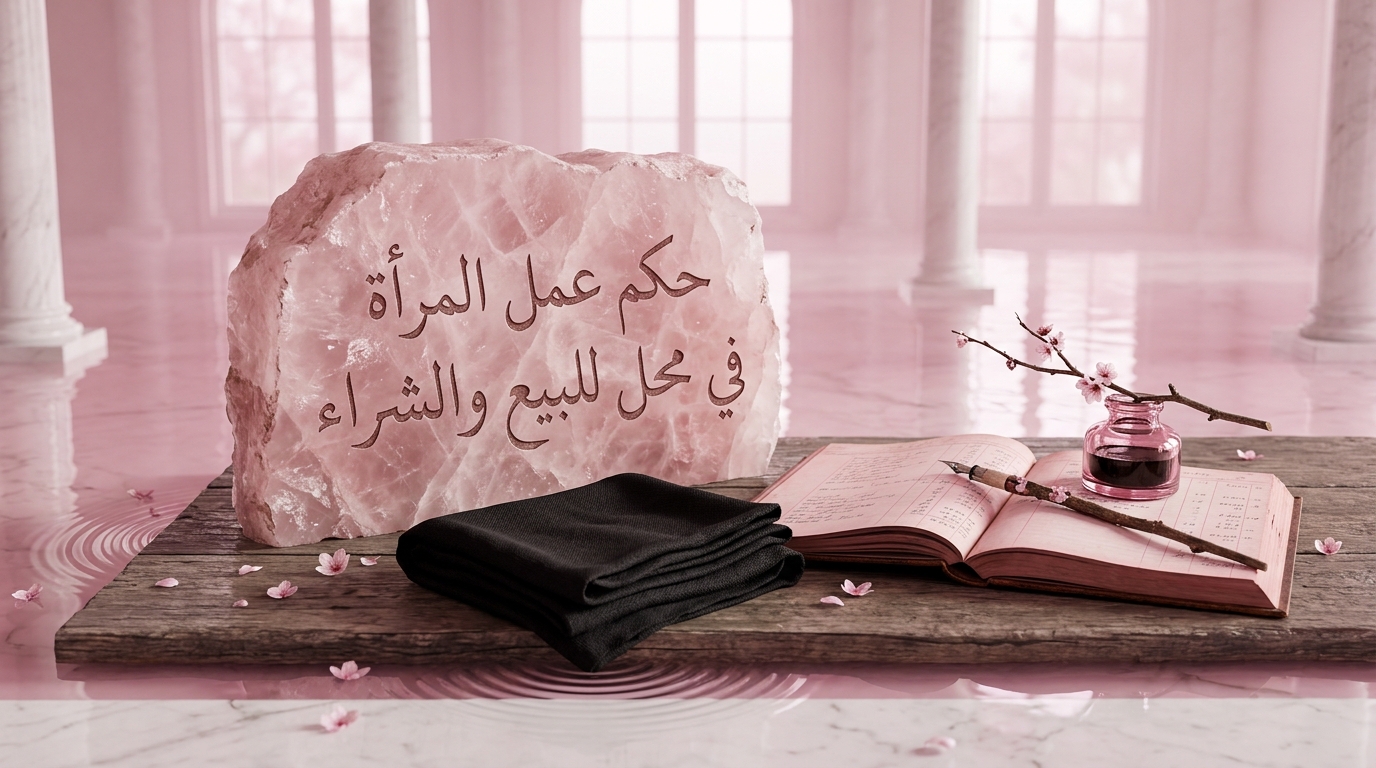 حكم عمل المرأة
في محل للبيع والشراء